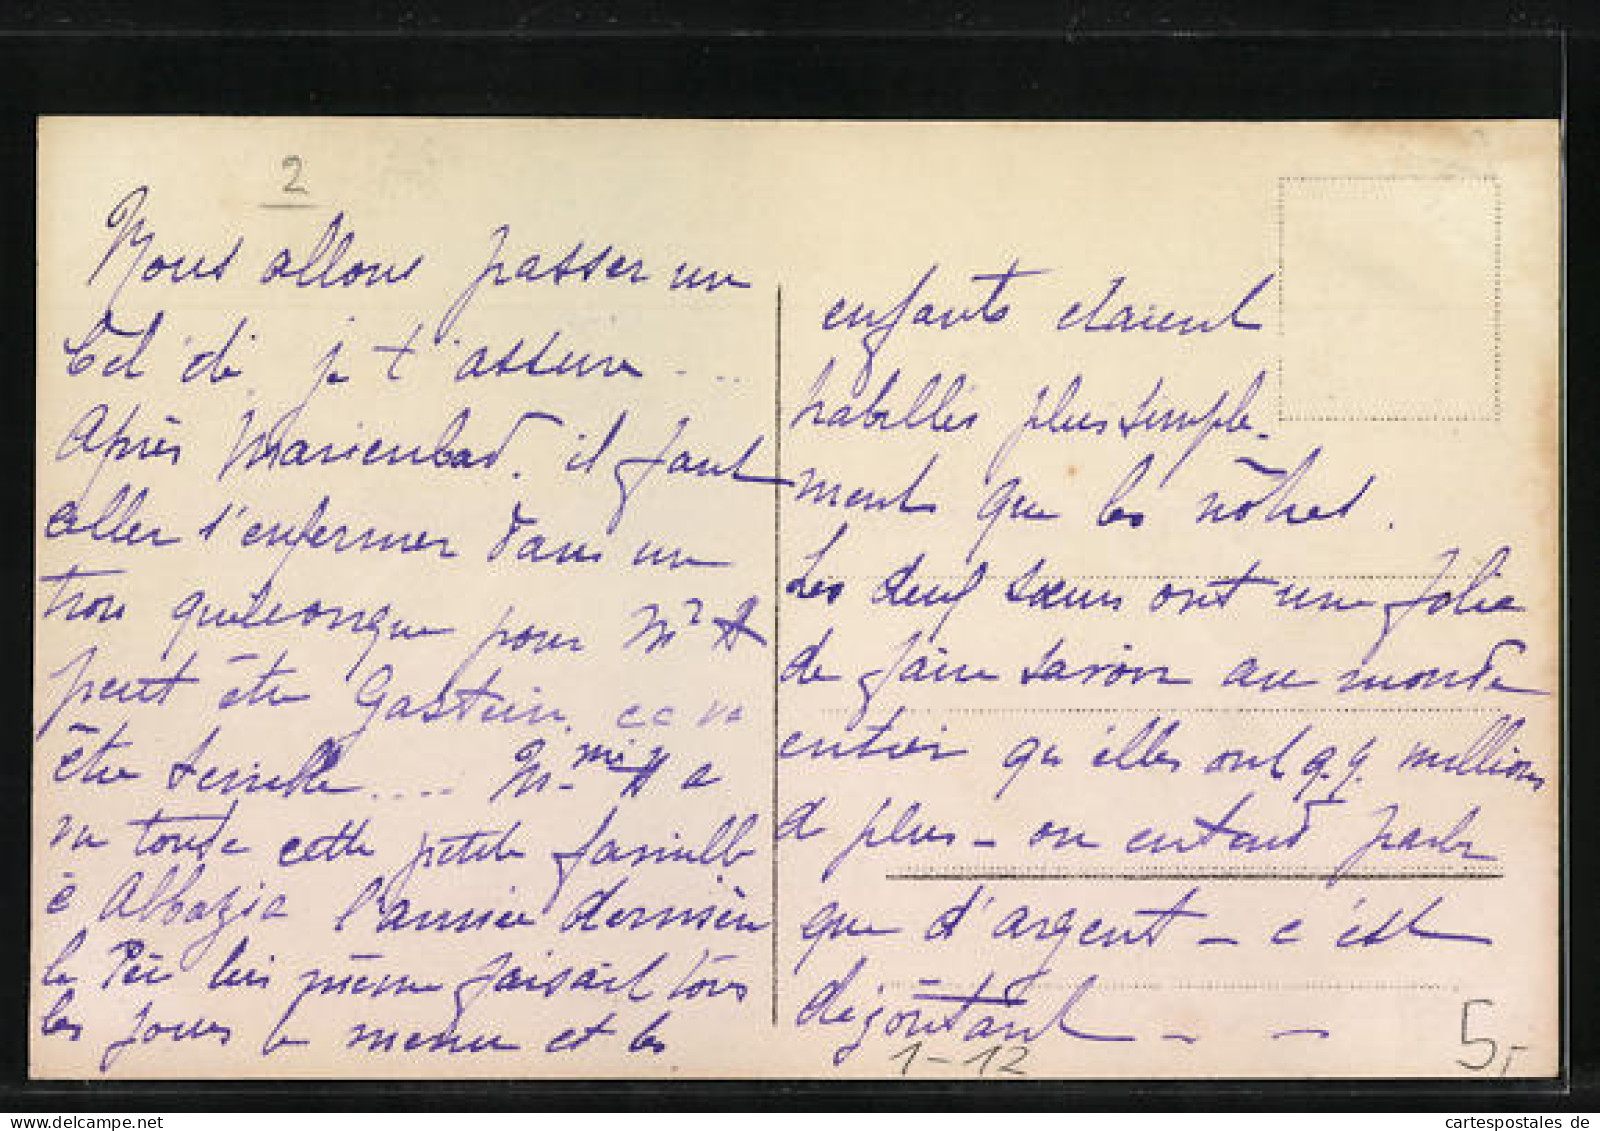 2
Nous allons passer un
bel été je t'assure ...
Après Marienbad. il faut
aller s'enfermer dans un
trou quelconque pour Mr A
peut être Gastein, ce va
être terrible .... Mme A a
vu toute cette petite famille
à Abbazia l'année dernière
le Père lui même faisait tous
les jours le menu et les
enfants étaient
habillés plus simple-
ment que les nôtres.
Les deux soeurs ont une folie
de faire savoir au monde
entier qu'elles ont q.q. millions
de plus - on entend parler
que d'argent - c'est
dégoûtant - -
1-12
5,-
cartespostales de